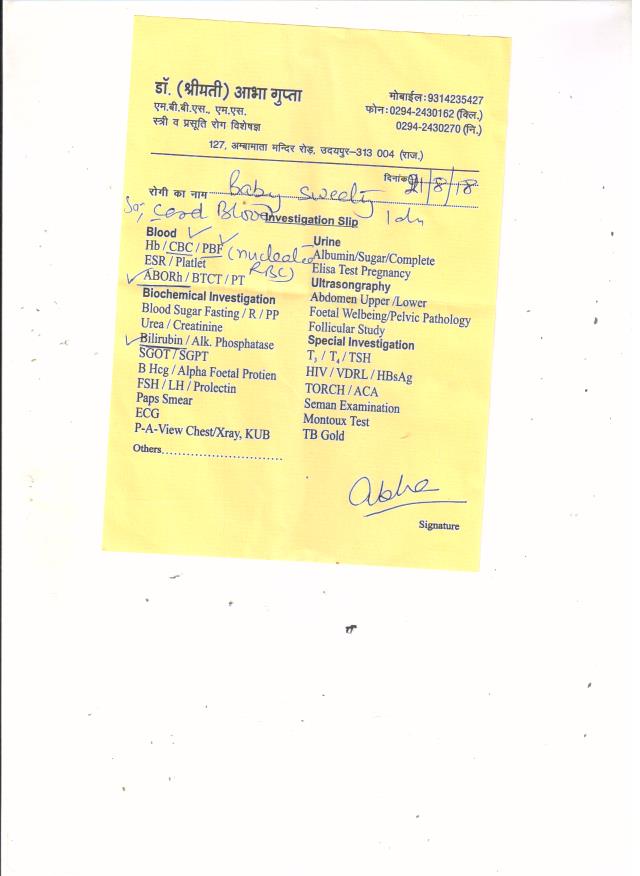 डॉ. (श्रीमती) आभा गुप्ता
एम.बी.बी.एस., एम.एस.
स्त्री व प्रसूति रोग विशेषज्ञ
मोबाईल : 9314235427
फोन : 0294-2430162 (क्लि.)
0294-2430270 (नि.)
127, अम्बामाता मन्दिर रोड़, उदयपुर–313 004 (राज.)
दिनांक 21/8/18
रोगी का नाम Baby Sweety
Cord Blood
Investigation Slip
Blood
Hb / CBC / PBF (nucleated RBC)
ESR / Platlet
ABORh / BTCT / PT
Biochemical Investigation
Blood Sugar Fasting / R / PP
Urea / Creatinine
Bilirubin / Alk. Phosphatase
SGOT / SGPT
B Hcg / Alpha Foetal Protien
FSH / LH / Prolectin
Paps Smear
ECG
P-A-View Chest/Xray, KUB
Others..............................
Urine
Albumin/Sugar/Complete
Elisa Test Pregnancy
Ultrasongraphy
Abdomen Upper /Lower
Foetal Welbeing/Pelvic Pathology
Follicular Study
Special Investigation
T₃ / T₄ / TSH
HIV / VDRL / HBsAg
TORCH / ACA
Seman Examination
Montoux Test
TB Gold
Abha
Signature